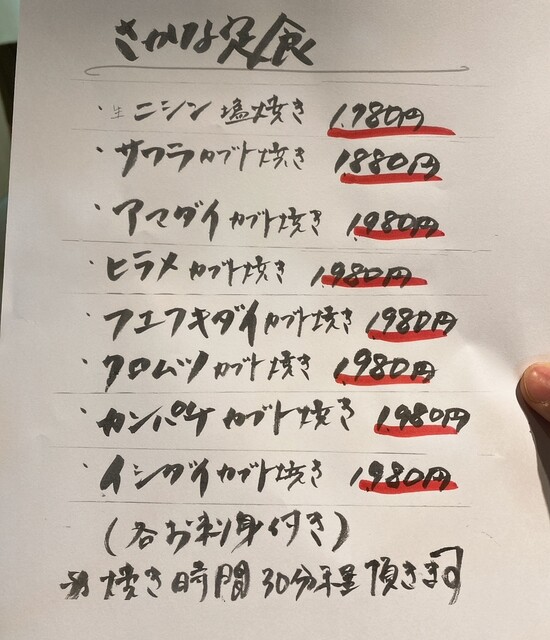 さかな定食
・生ニシン塩焼き 1,980円
・サワラカブト焼き 1880円
・アマダイカブト焼き 1,980円
・ヒラメカブト焼き 1,980円
・フエフキダイカブト焼き 1,980円
・クロムツカブト焼き 1,980円
・カンパチカブト焼き 1,980円
・イシダイカブト焼き 1,980円
(各お刺身付き)
※焼き時間30分程頂きます